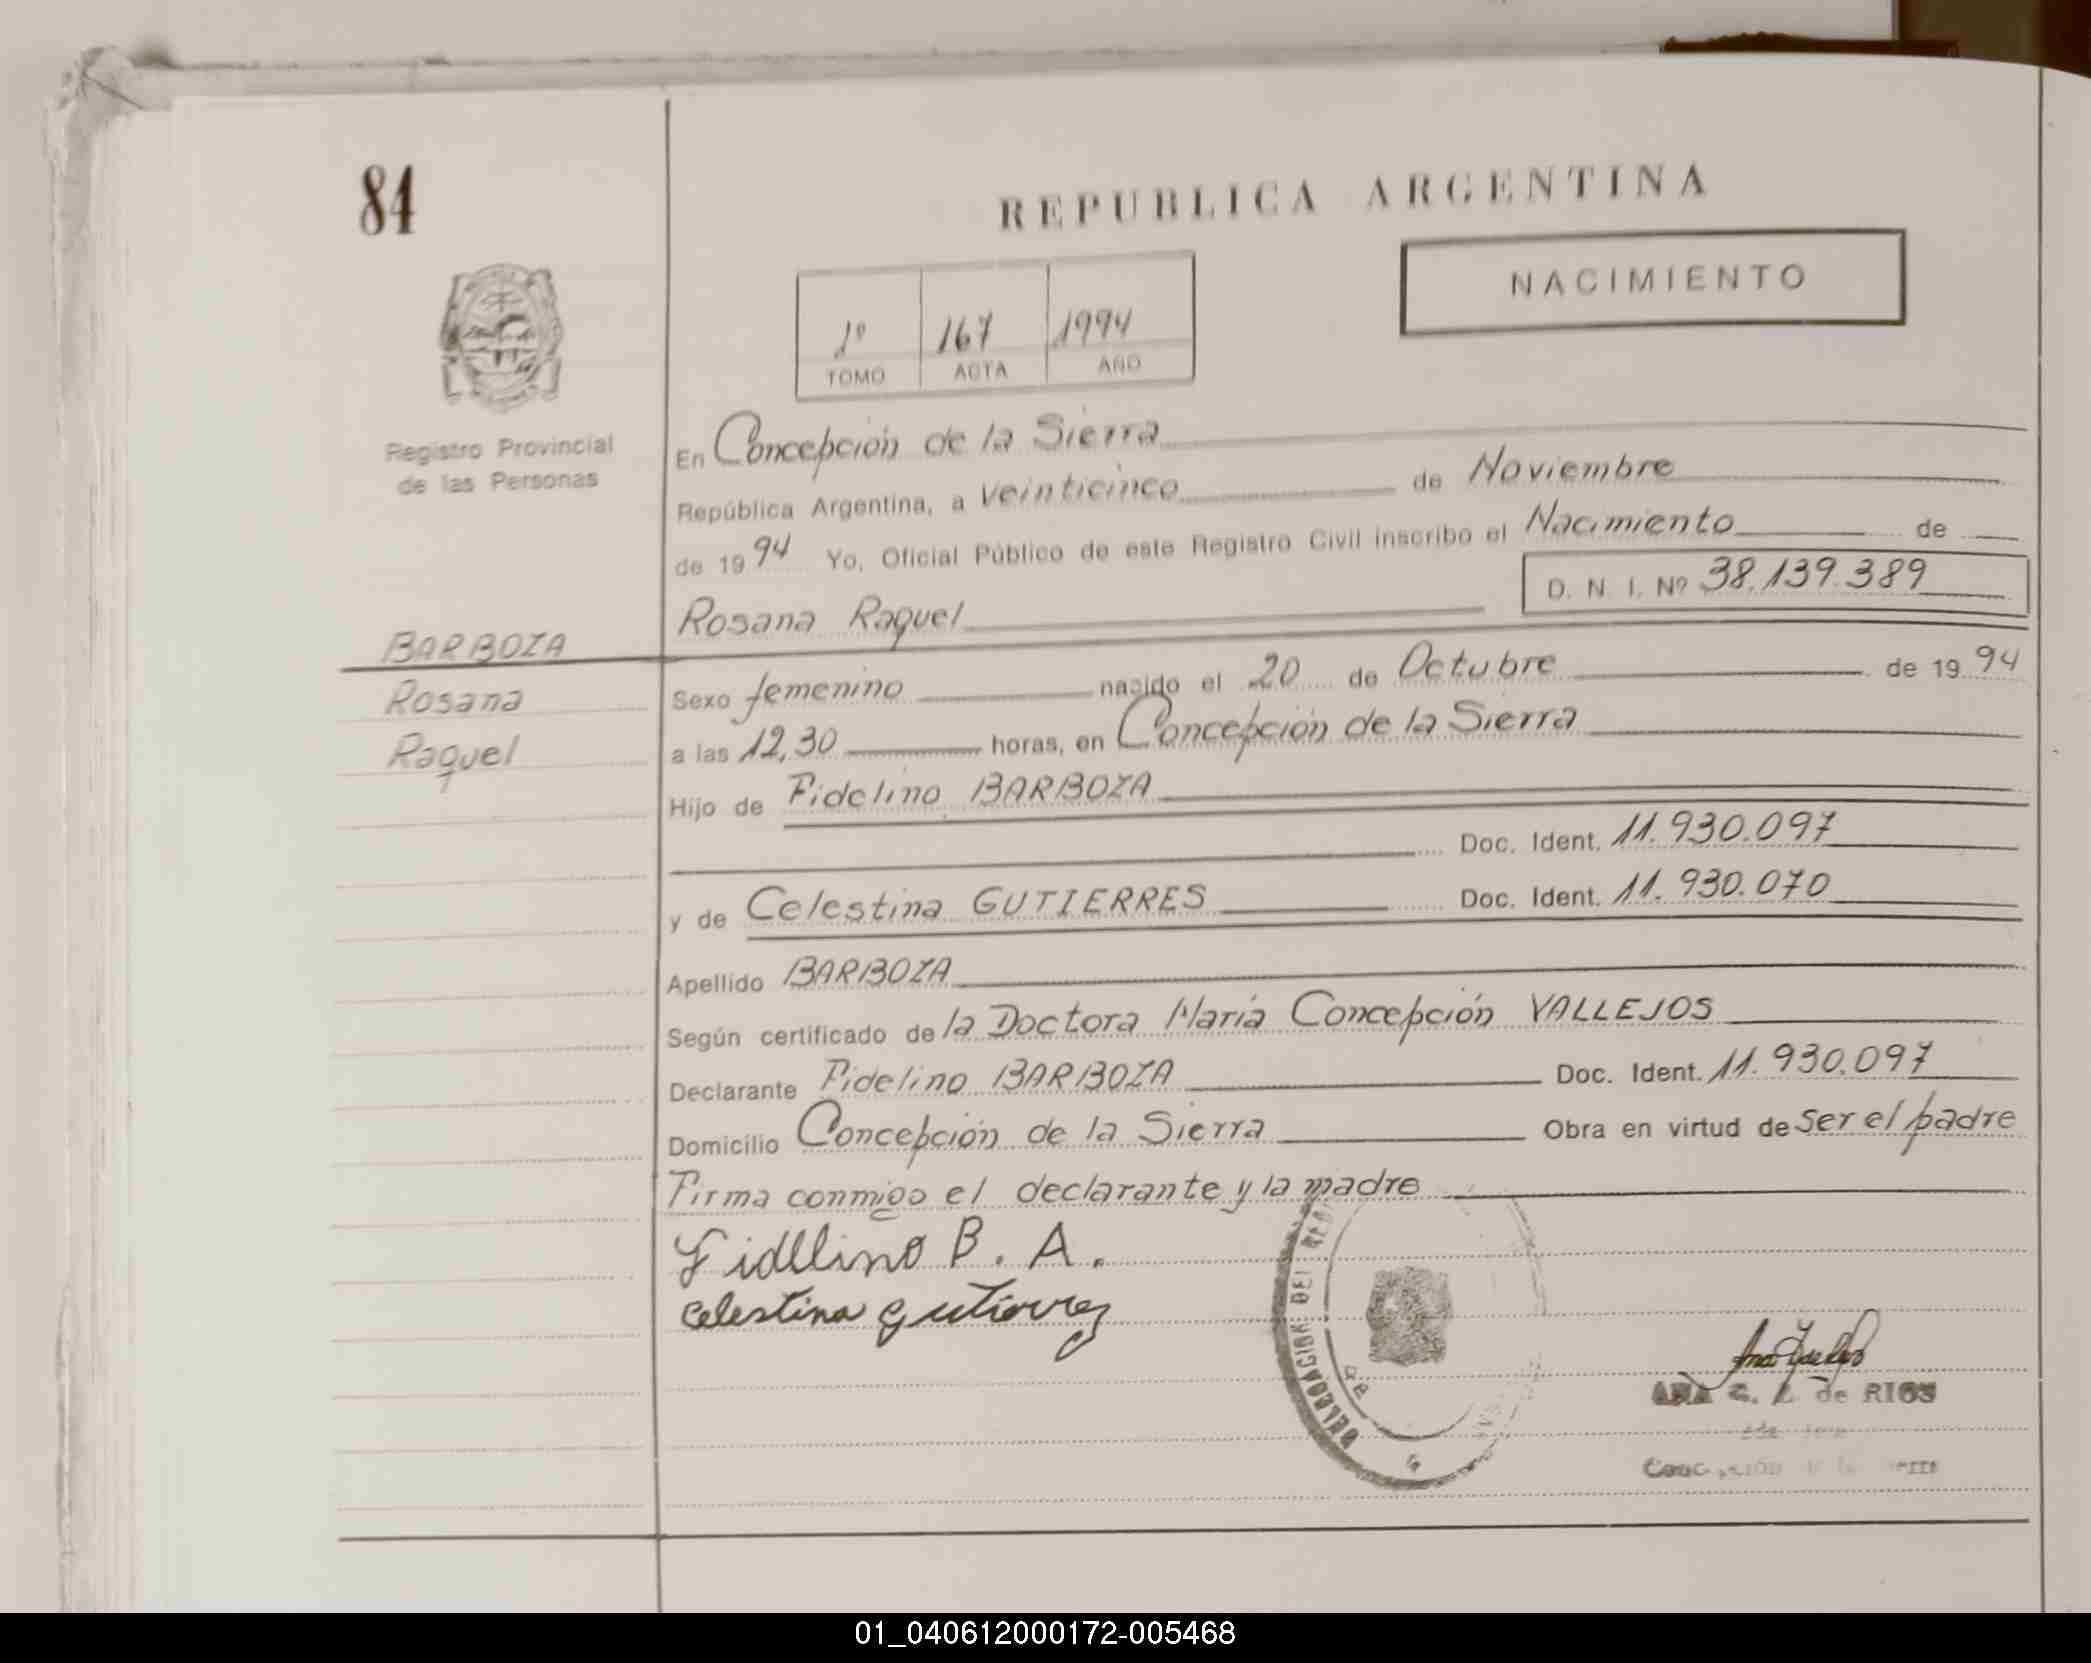 84
REPUBLICA ARGENTINA
NACIMIENTO
1º 167 1994
TOMO ACTA AÑO
Registro Provincial
de las Personas
En Concepción de la Sierra
República Argentina, a veinticinco de Noviembre
de 1994 Yo, Oficial Público de este Registro Civil inscribo el Nacimiento de
Rosana Raquel D. N. I. Nº 38.139.389
BARBOZA
Rosana
Raquel
Sexo femenino nacido el 20 de Octubre de 1994
a las 12,30 horas, en Concepción de la Sierra
Hijo de Fidelino BARBOZA
Doc. Ident. 11.930.097
y de Celestina GUTIERRES Doc. Ident. 11.930.070
Apellido BARBOZA
Según certificado de la Doctora María Concepción VALLEJOS
Declarante Fidelino BARBOZA Doc. Ident. 11.930.097
Domicilio Concepción de la Sierra Obra en virtud de ser el padre
Firma conmigo el declarante y la madre
Fidelino B. A.
Celestina Gutierrez
DELEGACION DEL REG
ANA C. Z. de RIOS
01_040612000172-005468